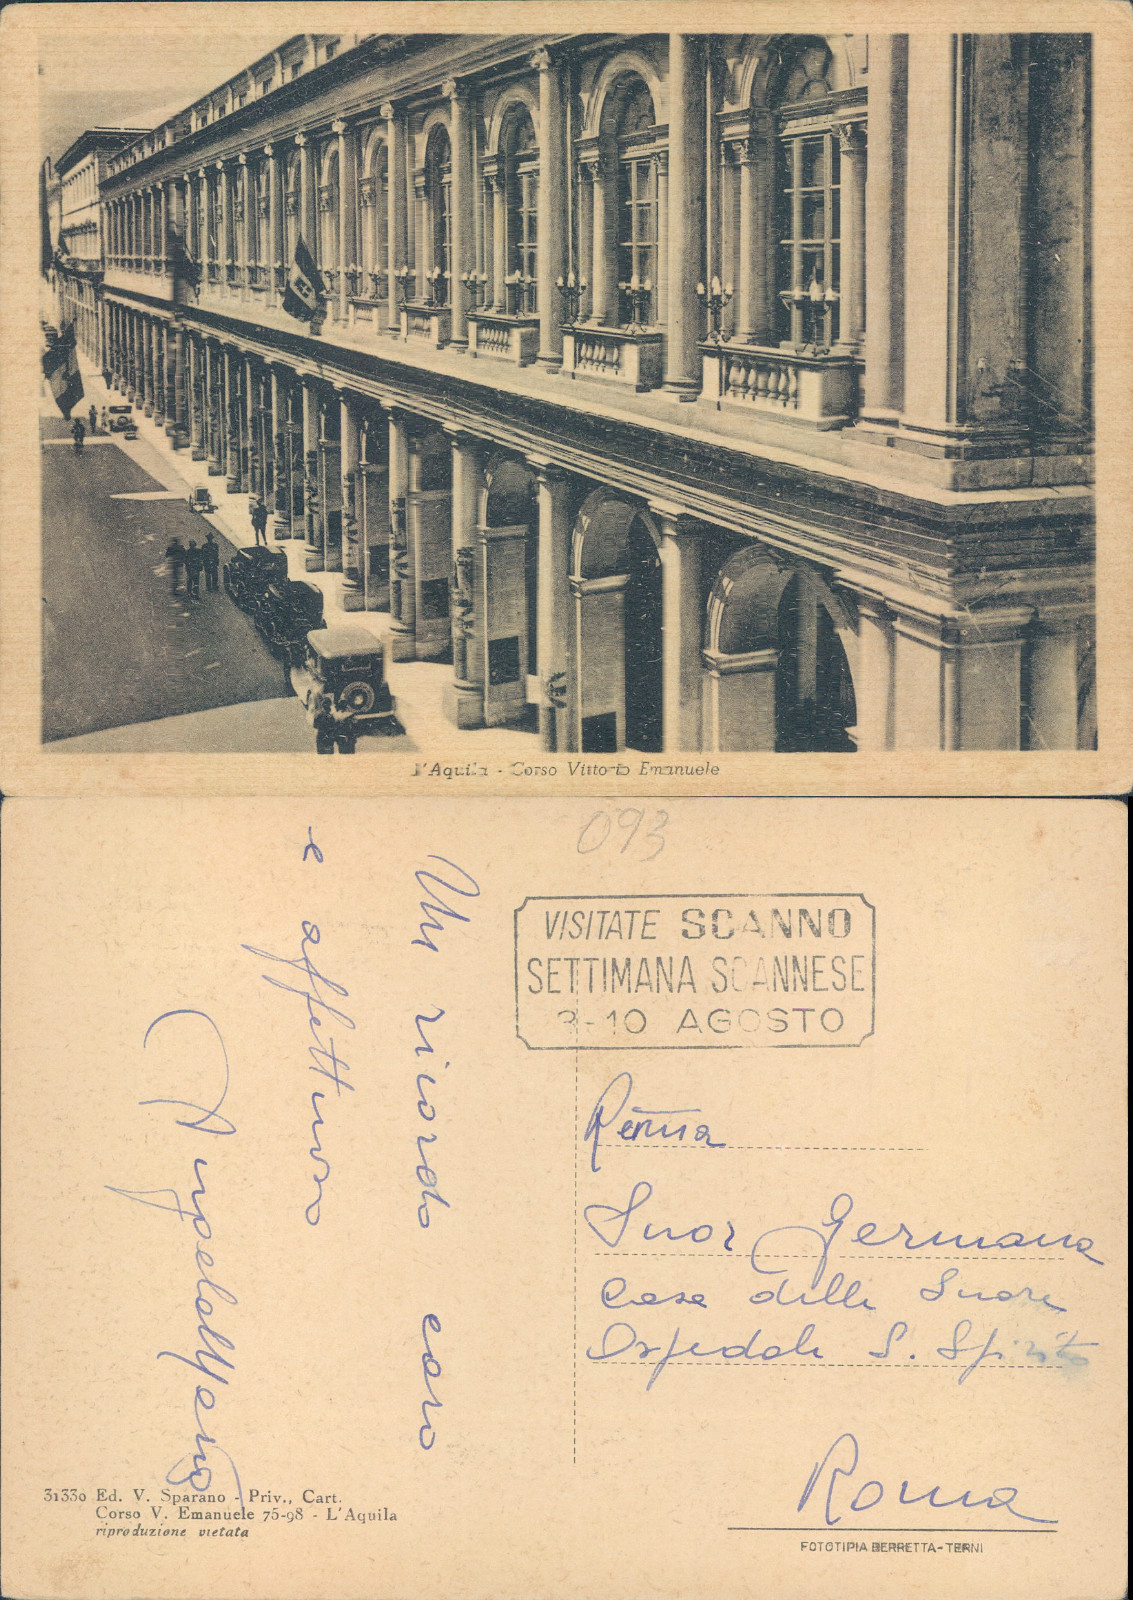 L'Aquila - Corso Vittorio Emanuele
093
VISITATE SCANNO
SETTIMANA SCANNESE
3-10 AGOSTO
Un ricordo caro
e affettuoso
Suor Germana
Casa delle Suore
Ospedale S. Spirito
Roma
31330 Ed. V. Sparano - Priv., Cart.
Corso V. Emanuele 75-98 - L'Aquila
riproduzione vietata
FOTOTIPIA BERRETTA-TERNI